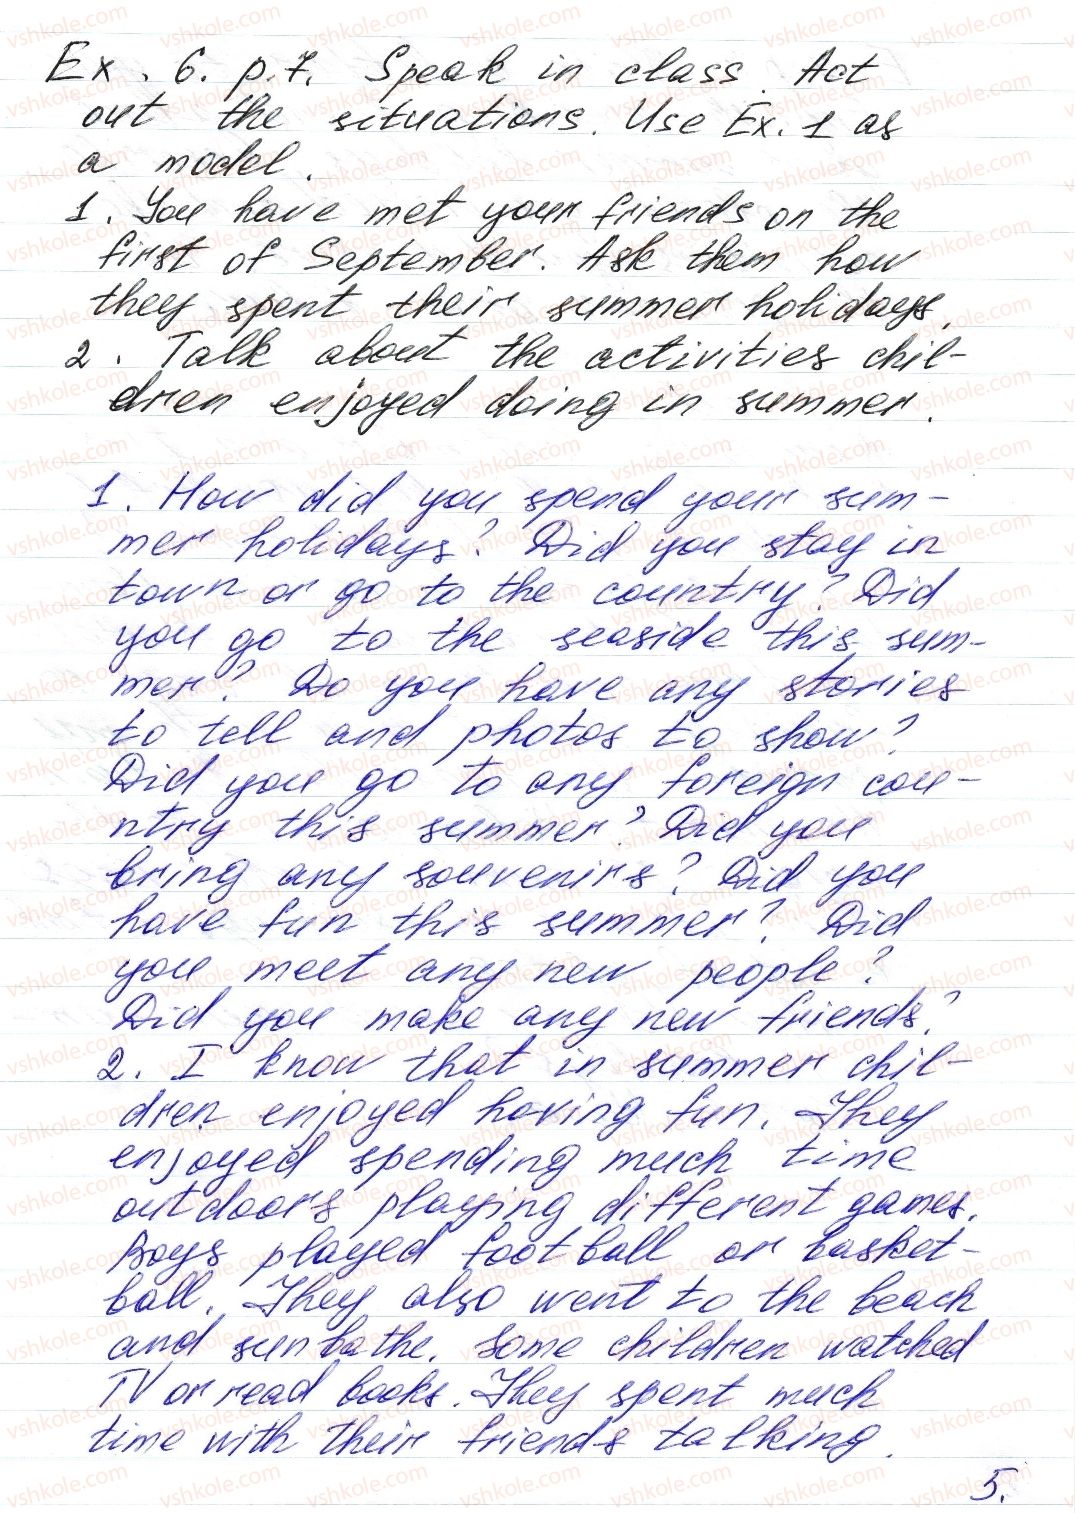 Ex. 6. p.7. Speak in class. Act
out the situations. Use Ex. 1 as
a model.
1. You have met your friends on the
first of September. Ask them how
they spent their summer holidays.
2. Talk about the activities chil-
dren enjoyed doing in summer.
1. How did you spend your sum-
mer holidays? Did you stay in
town or go to the country? Did
you go to the seaside this sum-
mer? Do you have any stories
to tell and photos to show?
Did you go to any foreign cou-
ntry this summer? Did you
bring any souvenirs? Did you
have fun this summer? Did
you meet any new people?
Did you make any new friends?
2. I know that in summer chil-
dren enjoyed having fun. They
enjoyed spending much time
outdoors playing different games.
Boys played football or basket-
ball. They also went to the beach
and sunbathe. Some children watched
TV or read books. They spent much
time with their friends talking.
5.
vshkole.com